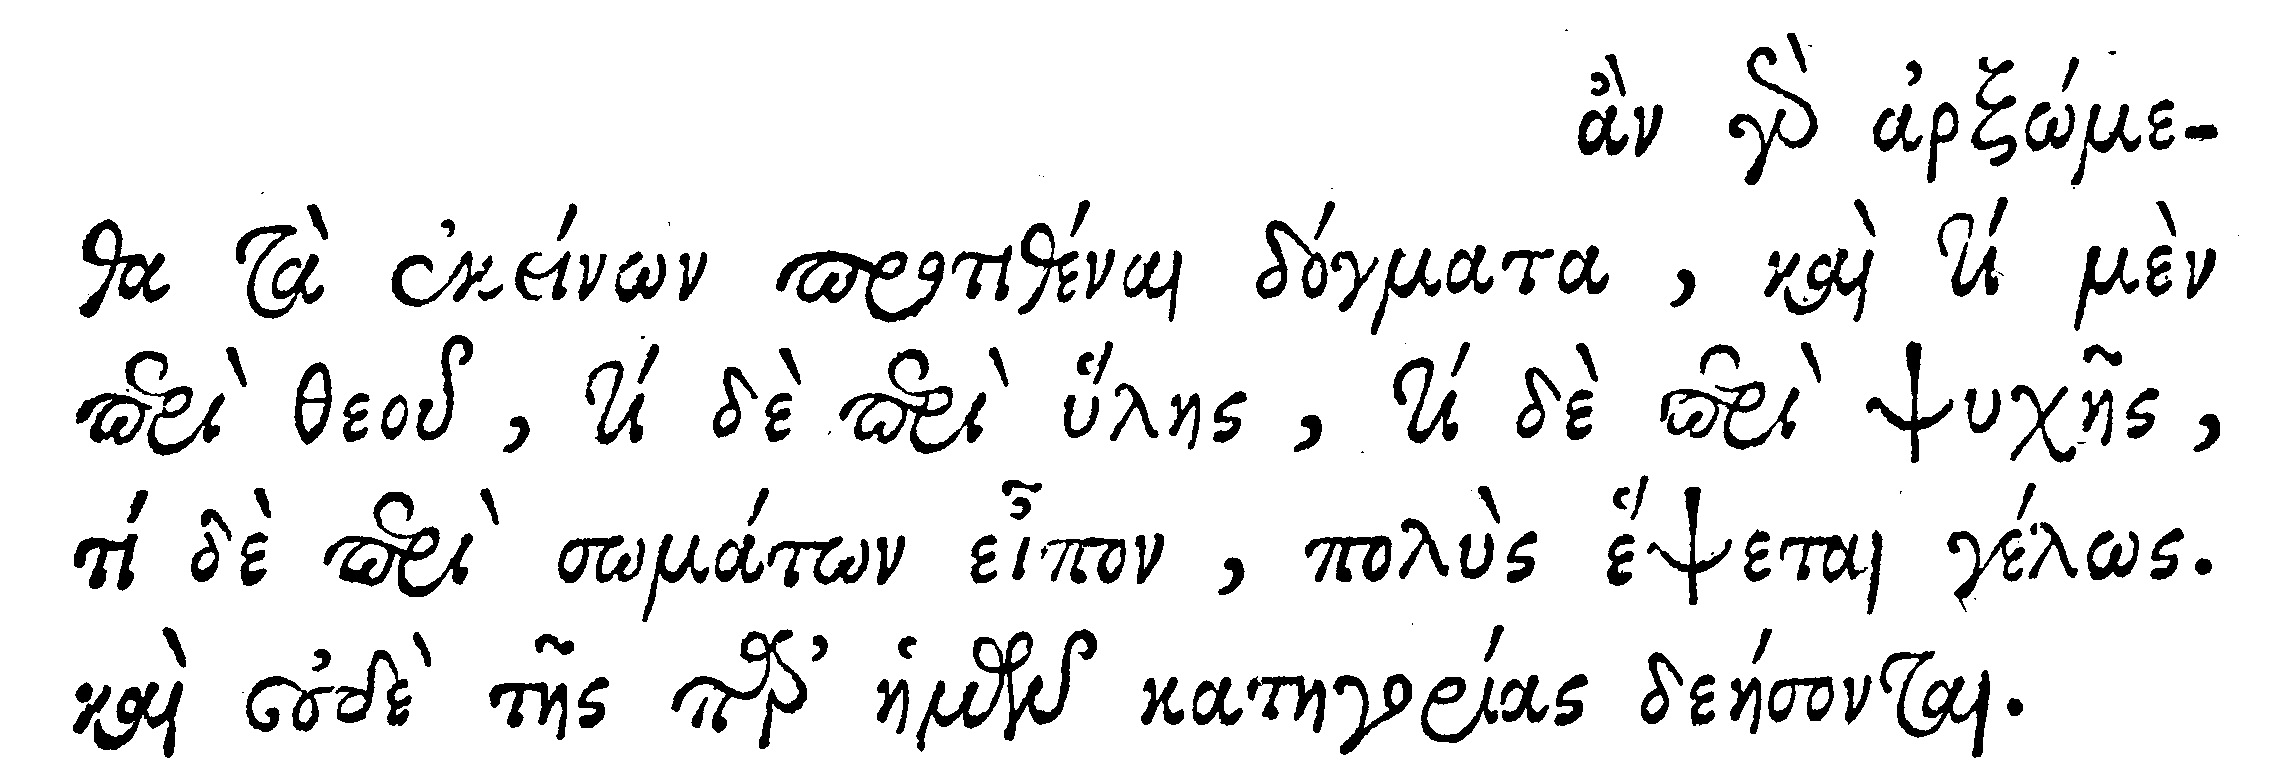 ἂν γὰρ ἀρξώμε-
θα τὰ ἐκείνων προτιθέναι δόγματα, καὶ τί μὲν
περὶ θεοῦ, τί δὲ περὶ ὕλης, τί δὲ περὶ ψυχῆς,
τί δὲ περὶ σωμάτων εἶπον, πολὺς ἕψεται γέλως.
καὶ οὐδὲ τῆς παρ’ ἡμῶν κατηγορίας δεήσονται.